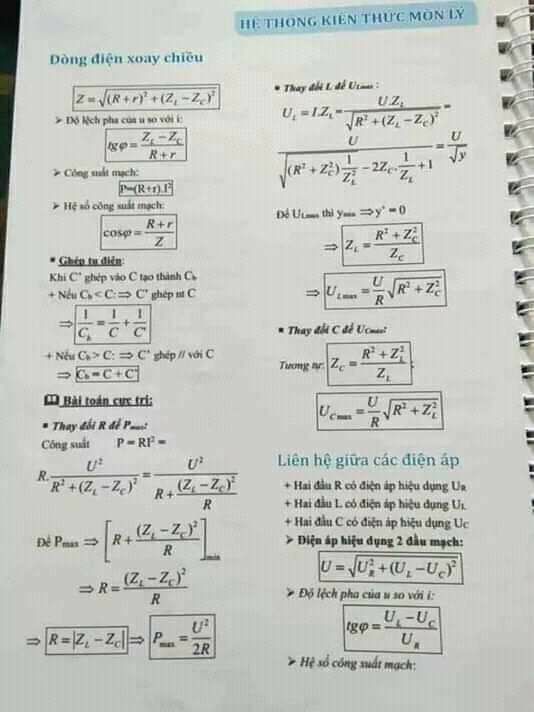 HỆ THỐNG KIẾN THỨC MÔN LÝ
Dòng điện xoay chiều
Z = √((R + r)² + (Z_L − Z_C)²)
➤ Độ lệch pha của u so với i:
tgφ = (Z_L − Z_C)/(R + r)
➤ Công suất mạch:
P=(R+r).I²
➤ Hệ số công suất mạch:
cosφ = (R + r)/Z
* Ghép tụ điện:
Khi C' ghép vào C tạo thành C_b
+ Nếu C_b < C: ⟹ C' ghép nt C
⟹ 1/C_b = 1/C + 1/C'
+ Nếu C_b > C: ⟹ C' ghép // với C
⟹ C_b = C + C'
Bài toán cực trị:
▪ Thay đổi R để Pmax:
Công suất P = RI² =
R. U²/(R² + (Z_L − Z_C)²) = U²/(R + (Z_L − Z_C)²/R)
Để Pmax ⟹ [R + (Z_L − Z_C)²/R]min
⟹ R = (Z_L − Z_C)²/R
⟹ R = |Z_L − Z_C| ⟹ P_max = U²/2R
▪ Thay đổi L để U_Lmax :
U_L = I.Z_L = U.Z_L/√(R² + (Z_L − Z_C)²) =
U/√((R² + Z_C²) 1/Z_L² − 2Z_C. 1/Z_L + 1) = U/√y
Để U_Lmax thì ymin ⟹ y' = 0
⟹ Z_L = (R² + Z_C²)/Z_C
⟹ U_Lmax = U/R √(R² + Z_C²)
▪ Thay đổi C để U_Cmax:
Tương tự: Z_C = (R² + Z_L²)/Z_L ;
U_Cmax = U/R √(R² + Z_L²)
Liên hệ giữa các điện áp
+ Hai đầu R có điện áp hiệu dụng U_R
+ Hai đầu L có điện áp hiệu dụng U_L
+ Hai đầu C có điện áp hiệu dụng U_C
➤ Điện áp hiệu dụng 2 đầu mạch:
U = √(U_R² + (U_L − U_C)²)
➤ Độ lệch pha của u so với i:
tgφ = (U_L − U_C)/U_R
➤ Hệ số công suất mạch: